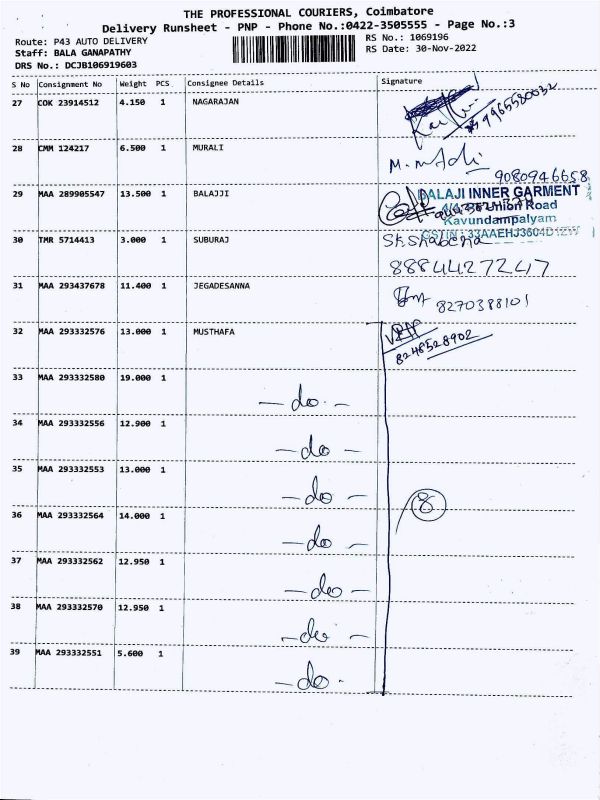 THE PROFESSIONAL COURIERS, Coimbatore
Delivery Runsheet - PNP - Phone No.:0422-3505555 - Page No.:3
Route: P43 AUTO DELIVERY
RS No.: 1069196
Staff: BALA GANAPATHY
RS Date: 30-Nov-2022
DRS No.: DCJB106919603
S No Consignment No Weight PCS Consignee Details Signature
27 COK 23914512 4.150 1 NAGARAJAN
28 CMM 124217 6.500 1 MURALI
9080946658
29 MAA 289905547 13.500 1 BALAJJI
BALAJI INNER GARMENT
Union Road
Kavundampalyam
GSTIN : 33AAEHJ3604D1ZW
30 TMR 5714413 3.000 1 SUBURAJ
8884427247
31 MAA 293437678 11.400 1 JEGADESANNA
8270388101
32 MAA 293332576 13.000 1 MUSTHAFA
8248528902
33 MAA 293332580 19.000 1
- do -
34 MAA 293332556 12.900 1
- do -
35 MAA 293332553 13.000 1
- do -
8
36 MAA 293332564 14.000 1
- do -
37 MAA 293332562 12.950 1
- do -
38 MAA 293332570 12.950 1
- do -
39 MAA 293332551 5.600 1
- do -